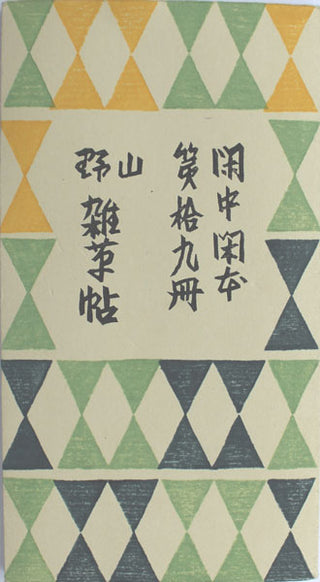 閑中閑本
第拾九冊
山野
雑草帖